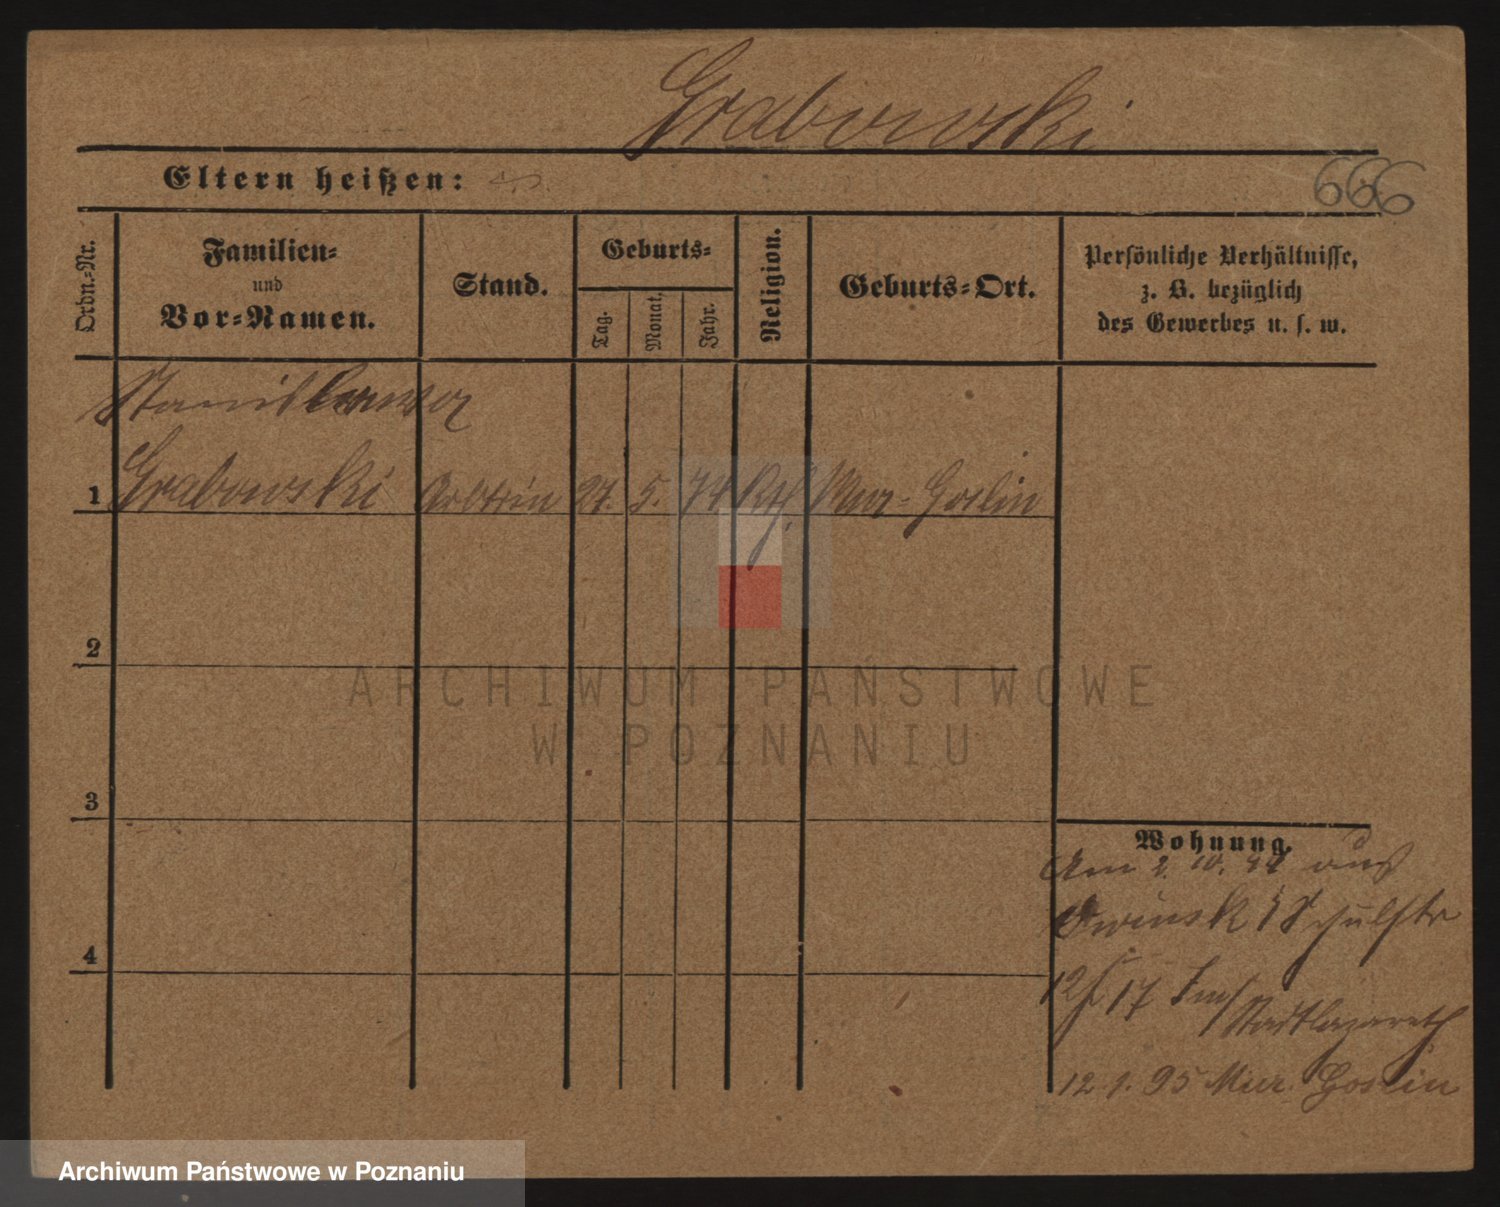 Grabowski
Eltern heißen:
666
Ordn.-Nr.
Familien-
und
Vor-Namen.
Stand.
Geburts-
Tag.
Monat.
Jahr.
Religion.
Geburts-Ort.
Persönliche Verhältnisse,
z. B. bezüglich
des Gewerbes u. s. w.
Stanislawa
1 Grabowski Arbtrin 27. 5. 74 Kth. Mur-Goslin
2
3
4
Wohnung.
Am 2. 10. 94 aus
Owinsk Schulstr
12/ 17 Stadtlazareth
12. 1. 95 Mur. Goslin
ARCHIWUM PAŃSTWOWE
W POZNANIU
Archiwum Państwowe w Poznaniu